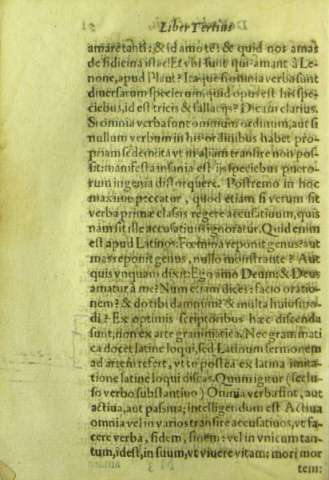 Liber Tertius
amare tanti: & id amo te: & quid nos amas
de fidicina istac? Et vbi sunt qui amant à Le-
none, apud Plaut? Itaque si omnia verba sunt
diuersarum specierum quid opus est his spe-
ciebus, id est tricis & fallacijs? Dicam clarius.
Si omnia verba sunt omnium ordinum, aut si
nullum verbum in his ordinibus habet pro-
priam sedem ita vt in aliam transire non pos-
sit: manifesta insania est ijs speciebus puero-
rum ingenia distorquere. Postremo in hoc
maxime peccatur, quod etiam si verum sit
verba primæ classis regere accusatiuum, quis
nam sit ille accusatiuus ignoratur. Quid enim
est apud Latinos: Fœmina reponit genus? aut
mas reponit genus, nullo monstrante? Aut
quis vnquam dixit: Ego amo Deum: & Deus
amatur à me? Num etiam dices: facio oratio-
nem? & do tibi damnum? & multa huiusmo-
di? Ex optimis scriptoribus hæc discenda
sunt, non ex arte grammatica. Nec grammati
ca docet latine loqui, sed Latinum sermonem
ad artem refert, vt to postea ex latina imita-
tione latine loqui discas. Quum igitur (seclu-
so verbo substantiuo) Omnia verba sint, aut
actiua, aut passiua; intelligendum est Actiua
omnia vel in varios transire accusatiuos, vt fa-
cere verba, fidem, finem: vel in vnicum tan-
tum, id est, in suum, vt viuere vitam: mori mor
tem: